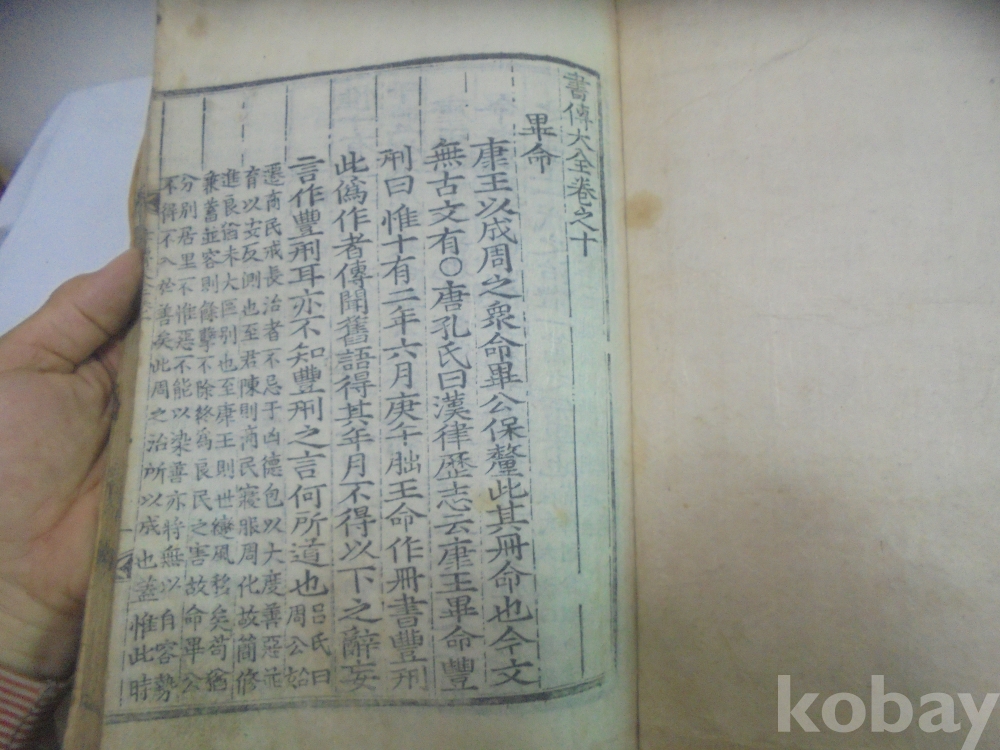 書傳大全卷之十
畢命
康王以成周之衆命畢公保釐此其冊命也今文
無古文有○唐孔氏曰漢律歷志云康王畢命豐
刑曰惟十有二年六月庚午朏王命作冊書豐刑
此僞作者傳聞舊語得其年月不得以下之辭妄
言作豐刑耳亦不知豐刑之言何所道也
呂氏曰
周公始
遷商民戒長治者不忌于凶德包以大度善惡並
育以安反側也至君陳則商民寢服周化故簡修
進良尙未大區別也至康王則世變風移矣苟猶
兼蓄並容則餘孽不除終爲良民之害故命畢公
分別居里不惟惡不能以染善亦將無以自容勢
不得不入於善矣此周之治所以成也蓋惟此時
kobay